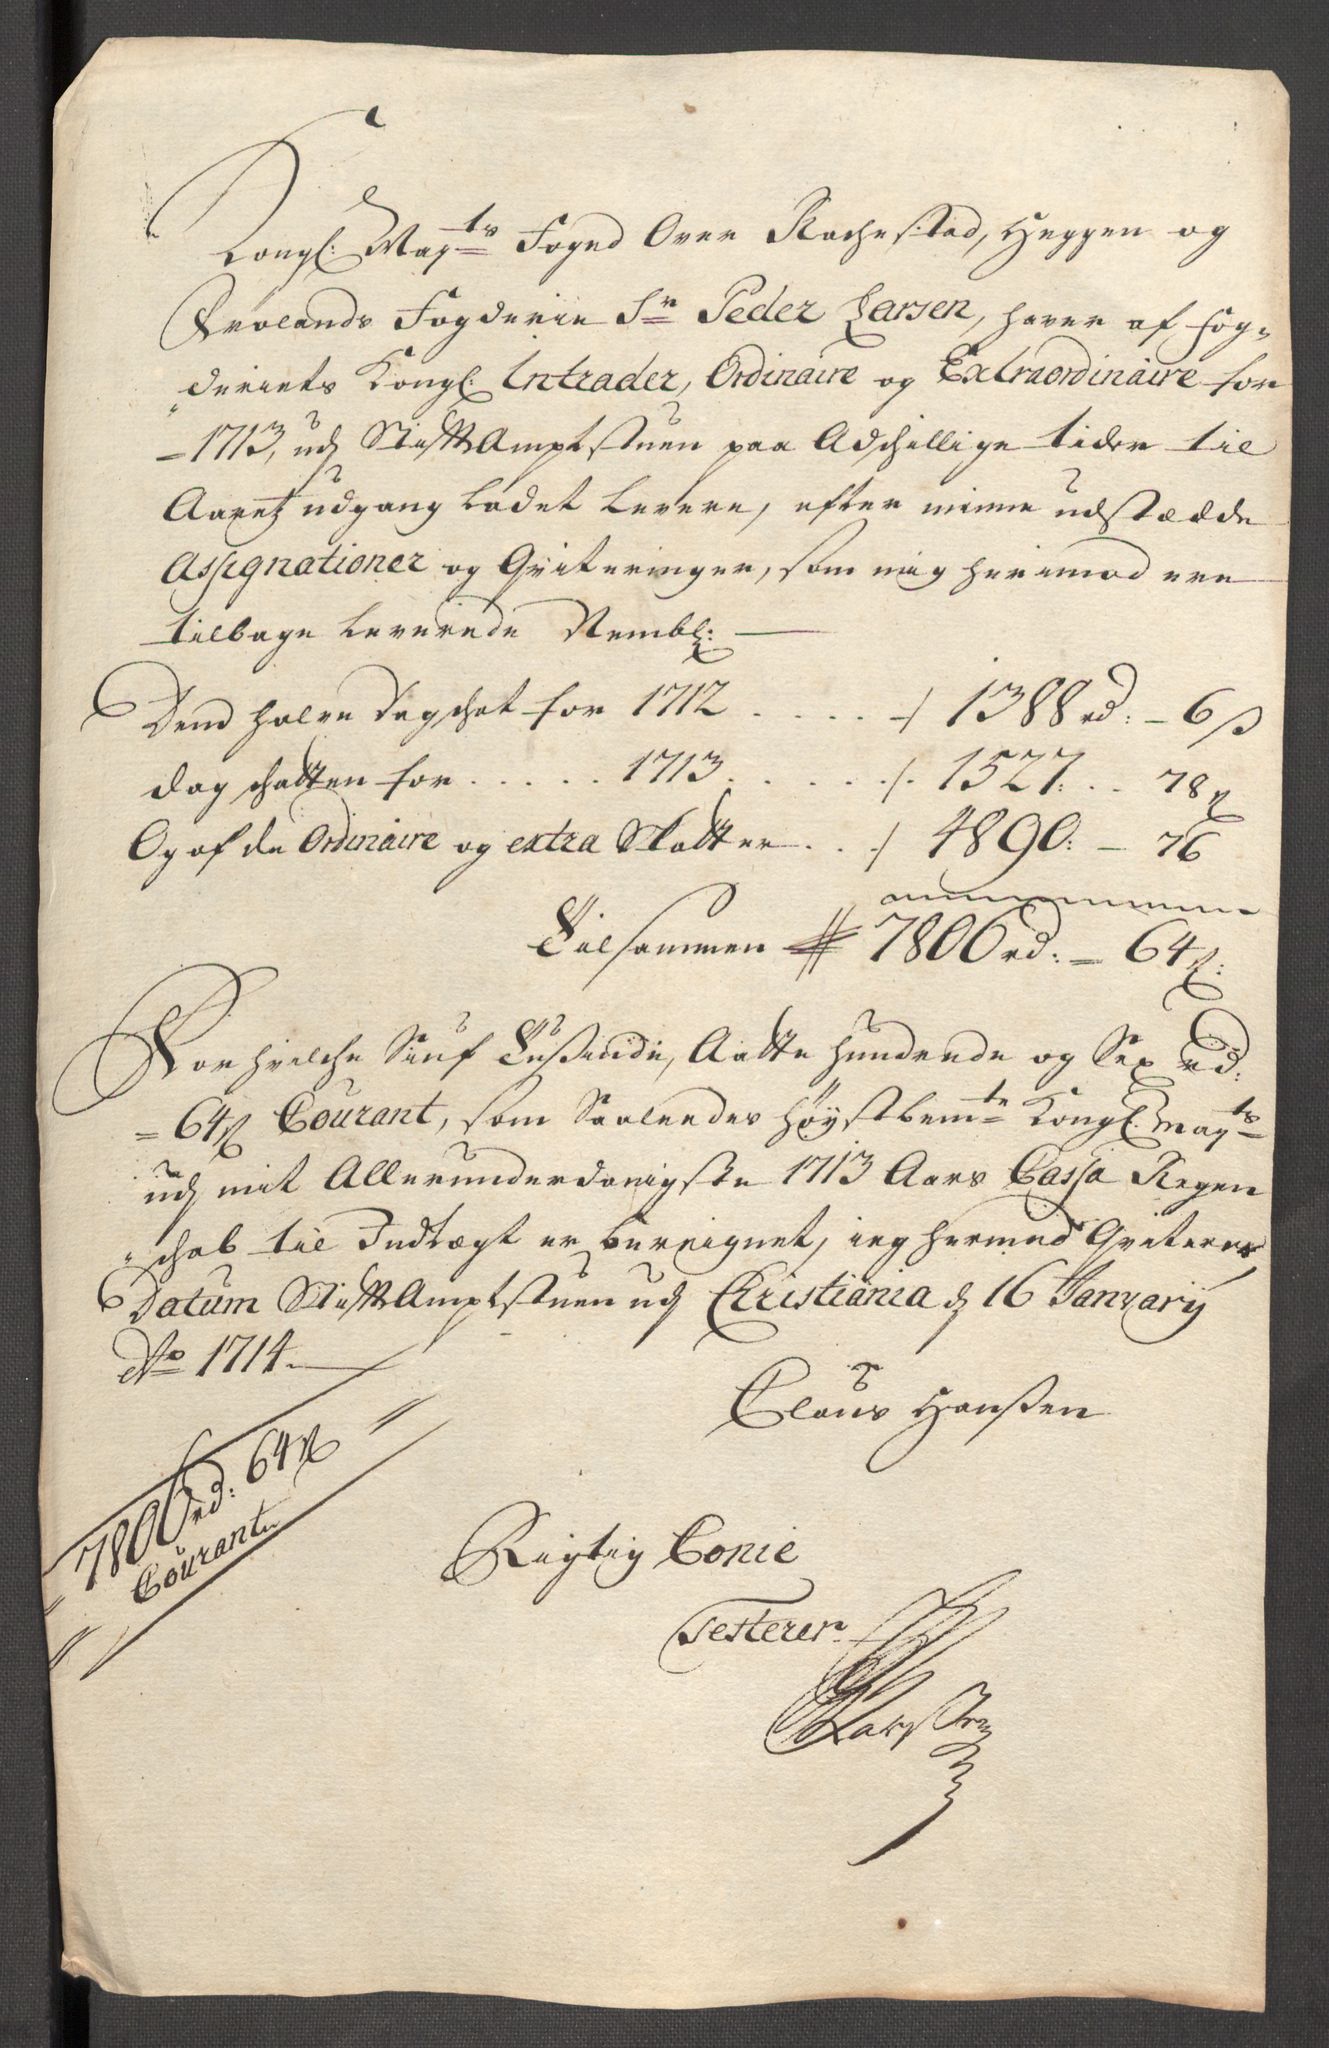 Kongl: May:ts Foged Over Rachestad, Heggen og
Frølands Fogderie Sr Peder Larsen, haver af Fog-
deriets Kongl: Intrader, Ordinaire og Extraordinaire for
1713, udj StifftAmptstuen paa Adschillige tider til
Aaretz udgang ladet levere, efter minne udstædde
Assignationer og Qviteringer, som mig herimod ere
tilbage leverede Nembl:
Dend halve Dagschat for 1712 . . . . 1388 rd: – 6 ß
dag schatten for . . . . . 1713 . . . . . 1527: . . 78 ß
Og af de Ordinaire og extra Skatter . . . 4890: – 76
Tilsammen 7806 rd: – 64 ß:
For hvilche Siuf Tusinde, Aatte hundrede og Sex rd:
= 64 ß Courant, som Saaleedes høystbemte Kongl: Mayts
udj mit Allerunderdanigste 1713 Aars Cassa Regen
schab til Indtægt er bereignet, ieg hermed Qviterer,
Datum StifftAmptstuen udj Christiania d 16 January
Ao 1714.
Claus Hanßen
7806 rd: 64 ß
Courant
Rigtig Copie
Testerer
Larssen